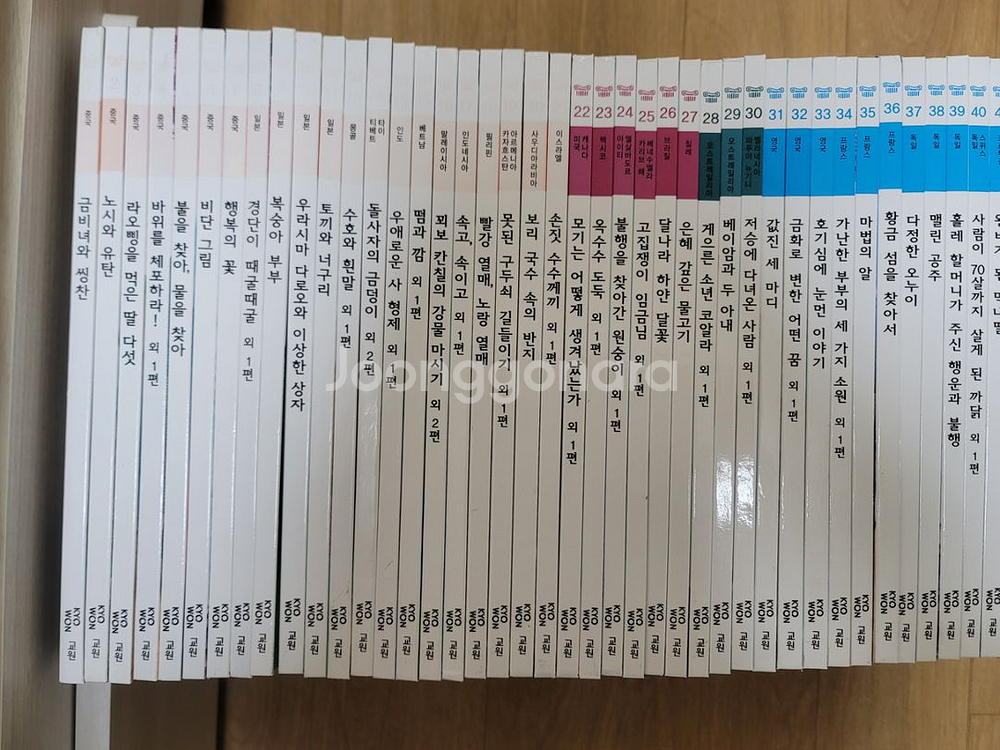 중국
금비녀와 찡찬
KYO WON 교원
중국
노시와 유탄
KYO WON 교원
중국
라오삥을 먹은 딸 다섯
KYO WON 교원
중국
바위를 체포하라! 외 1편
KYO WON 교원
중국
불을 찾아, 물을 찾아
KYO WON 교원
중국
비단 그림
KYO WON 교원
중국
행복의 꽃
KYO WON 교원
일본
경단이 때굴때굴 외 1편
KYO WON 교원
일본
복숭아 부부
KYO WON 교원
일본
우라시마 다로오와 이상한 상자
KYO WON 교원
일본
토끼와 너구리
KYO WON 교원
몽골
수호와 흰말 외 1편
KYO WON 교원
타이
티베트
돌사자의 금덩이 외 2편
KYO WON 교원
인도
우애로운 사 형제 외 1편
KYO WON 교원
베트남
떰과 깜 외 1편
KYO WON 교원
말레이시아
꾀보 칸칠의 강물 마시기 외 2편
KYO WON 교원
인도네시아
속고, 속이고 외 1편
KYO WON 교원
필리핀
빨강 열매, 노랑 열매
KYO WON 교원
아르메니아
카자흐스탄
못된 구두쇠 길들이기 외 1편
KYO WON 교원
사우디아라비아
보리 국수 속의 반지
KYO WON 교원
이스라엘
손짓 수수께끼 외 1편
KYO WON 교원
22
캐나다
미국
모기는 어떻게 생겨났는가 외 1편
KYO WON 교원
23
멕시코
옥수수 도둑 외 1편
KYO WON 교원
24
엘살바도르
아이티
불행을 찾아간 원숭이 외 1편
KYO WON 교원
25
베네수엘라
카리브 해
고집쟁이 임금님 외 1편
KYO WON 교원
26
브라질
달나라 하얀 달꽃
KYO WON 교원
27
칠레
은혜 갚은 물고기
KYO WON 교원
28
오스트레일리아
게으른 소년 코알라 외 1편
KYO WON 교원
29
오스트레일리아
베이암과 두 아내
KYO WON 교원
30
멜라네시아
파푸아 뉴기니
저승에 다녀온 사람 외 1편
KYO WON 교원
31
영국
값진 세 마디
KYO WON 교원
32
영국
금화로 변한 어떤 꿈 외 1편
KYO WON 교원
33
영국
호기심에 눈먼 이야기
KYO WON 교원
34
프랑스
가난한 부부의 세 가지 소원 외 1편
KYO WON 교원
35
프랑스
마법의 알
KYO WON 교원
36
프랑스
황금 섬을 찾아서
KYO WON 교원
37
독일
다정한 오누이
KYO WON 교원
38
독일
맬린 공주
KYO WON 교원
39
독일
홀레 할머니가 주신 행운과 불행
KYO WON 교원
40
스위스
독일
사람이 70살까지 살게 된 까닭 외 1편
KYO WON 교원
Joonggonara